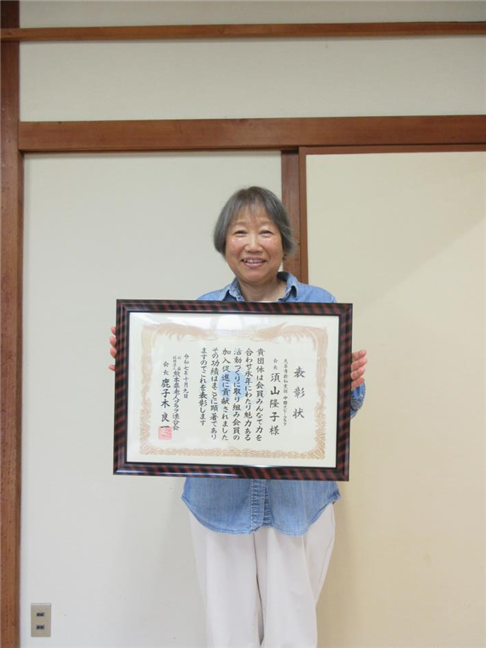 表彰状
会長 須山隆子様
貴団体は会員みんなで力を
合わせ永年にわたり魅力ある
活動づくりに取り組み会員の
加入促進に貢献されました
その功績はまことに顕著であり
ますのでこれを表彰します
令和七年十月九日
会長 鹿子木 良一